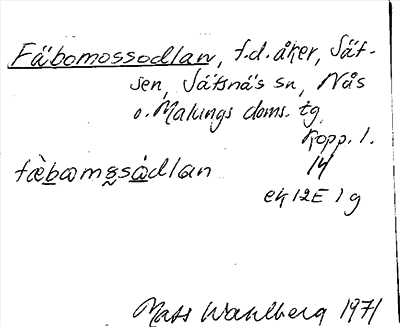 Fäbomossodlan, f.d. åker, Sät-
sen, Sätsnäs sn, Nås
o. Malungs doms. tg
Kopp. l.
fæ̀bωmsådlan 14
ek 12E 1g
Mats Wahlberg 1971